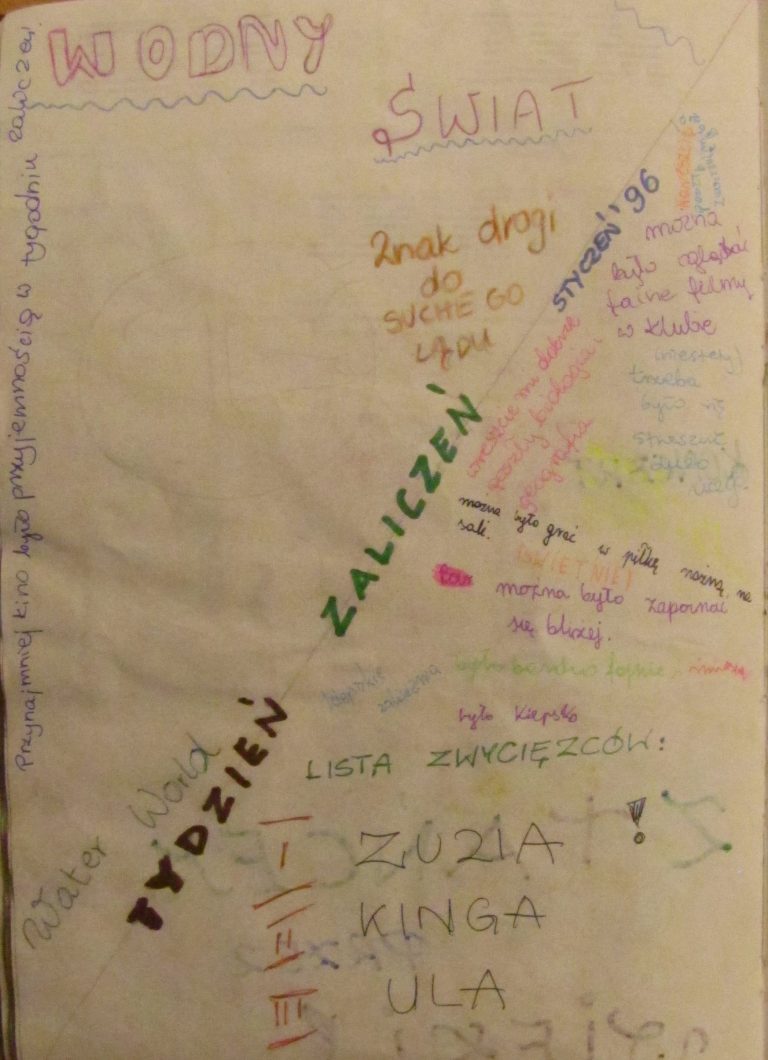 WODNY
ŚWIAT
Przynajmniej kino było przyjemnością w tygodniu zaliczeń.
Znak drogi
do
SUCHEGO
LĄDU
TYDZIEŃ ZALICZEŃ STYCZEŃ '96
można
było oglądać
fajne filmy
w klubie
(niestety)
trzeba
było
wreszcie mi dobrze
poszły biologia i
geografia
można było grać w piłkę nożną na
sali.
ŚWIETNIE!
można było zapoznać
się bliżej.
było bardzo fajnie
było kiepsko
Water World
LISTA ZWYCIĘZCÓW:
I ZUZIA !
II KINGA
III ULA